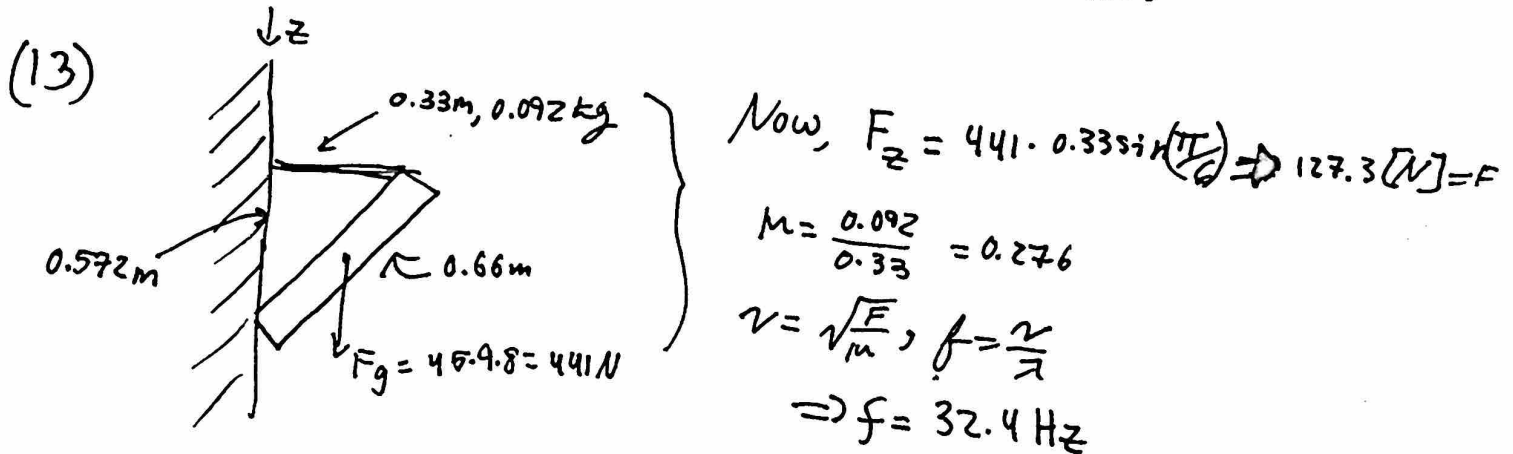 (13)
↓z
0.33m, 0.092 kg
0.572m
0.66m
Fg = 45·9.8 = 441N
Now, F_z = 441 · 0.33 sin(π/6) ⇒ 127.3 [N] = F
μ = 0.092/0.33 = 0.276
v = √(F/μ), f = v/λ
⇒ f = 32.4 Hz